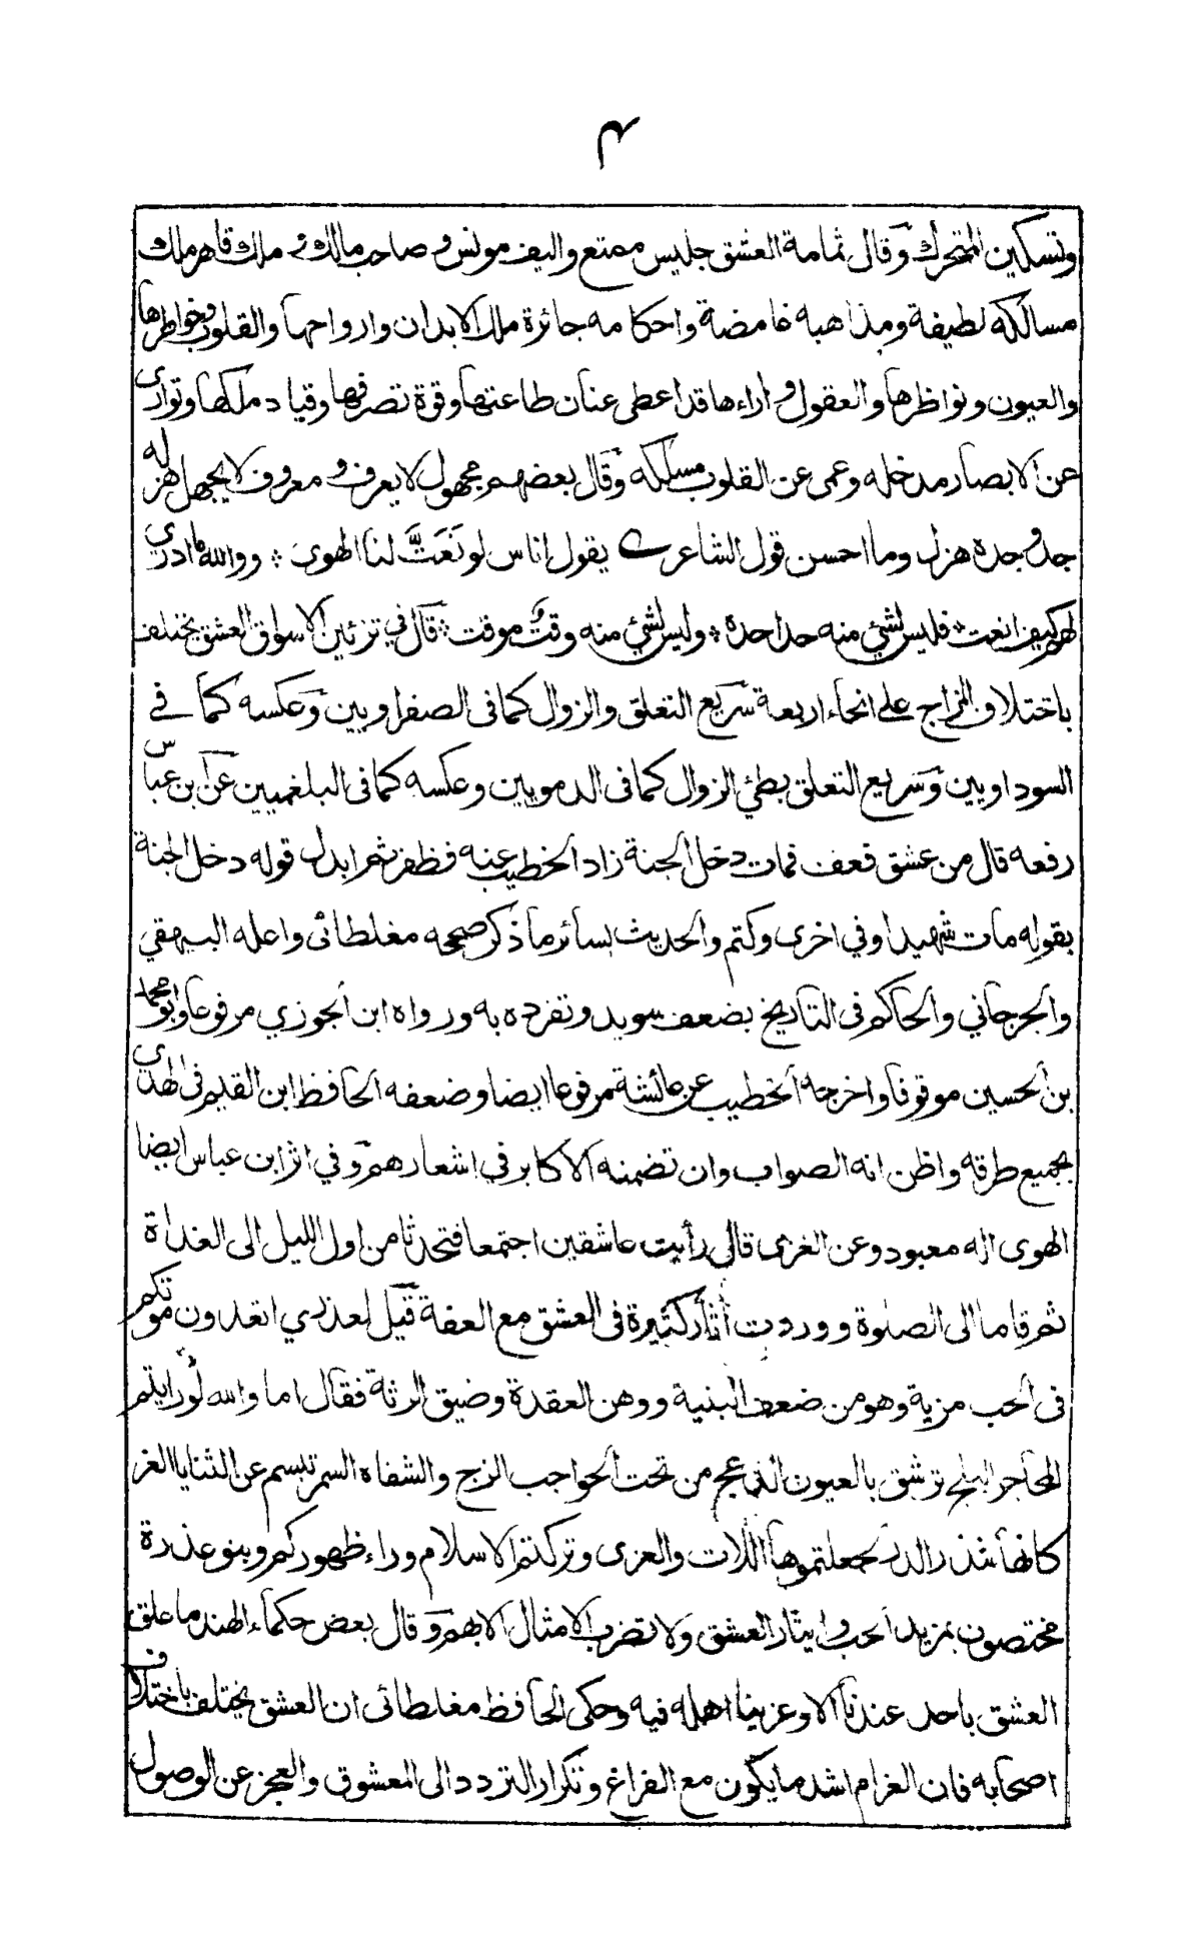 ٣
وتسكين المتحرك وقال ثمامة العشق جليس ممتع واليف مونس وصاحب مالك وملك قاهر ملك
مسالكه لطيفة ومذاهبه غامضة واحكامه جائزة ملك الابدان وارواحها والقلوب وخواطرها
والعيون ونواظرها والعقول واراءها قد اعطى عنان طاعتها وقوة تصرفها وقياد ملكها وتوارى
عن الابصار مدخله وعمى عن القلوب مسلكه وقال بعضهم مجهول لا يعرف ومعروف لا يجهل هزله
جد وجده هزل وما احسن قول الشاعر يقول اناس لو نَعَتَّ لنا الهوى ؞ ووالله ما ادرى
لهم كيف انعت ؞ فليس لشئ منه حد احده ؞ وليس لشئ منه وقتٌ موقت ؞ قال في تزئين الاسواق العشق يختلف
باختلاف المزاج على انحاء اربعة سريع التعلق والزوال كما فى الصفراويين وعكسه كما في
السوداويين وسريع التعلق بطئ الزوال كما فى الدمويين وعكسه كما فى البلغميين عن ابن عباس
رفعه قال من عشق فعف فمات دخل الجنة زاد الخطيب عنه فظفر ثم ابدل قوله دخل الجنة
بقوله مات شهيدا وفي اخرى وكتم والحديث بسائر ما ذكر صححه مغلطائى واعله البيهقي
والجرجاني والحاكم فى التاريخ بضعف سويد وتفرده به ورواه ابن الجوزي مرفوعا وابو محمد
بن الحسين موقوفا واخرجه الخطيب عن عائشة مرفوعا ايضا وضعفه الحافظ ابن القيم فى الهدى
بجميع طرقه واظن انه الصواب وان تضمنه الاكابر في اشعارهم وفي اثر ابن عباس ايضا
الهوى اله معبود وعن الغزى قال رأيت عاشقين اجتمعا فتحدثا من اول الليل الى الغداة
ثم قاما الى الصلوة ووردت أثار كثيرة فى العشق مع العفة قيل لعذري اتعدون موتكم
فى الحب مزية وهو من ضعف البنية ووهن العقدة وضيق الرئة فقال اما والله لو رايتم
المحاجر البلج ترشق بالعيون الدعج من تحت الحواجب الزج والشفاه السمر تبسم عن الثنايا الغر
كانها شذر الدر لجعلتموها اللات والعزى وتركتم الاسلام وراء ظهوركم وبنو عذرة
مختصون بمزيد الحب وايثار العشق ولا تضرب الامثال الا بهم وقال بعض حكماء الهند ما علق
العشق باحد عندنا الا وعزينا اهله فيه وحكى الحافظ مغلطائى ان العشق يختلف باختلاف
اصحابه فان الغرام اشد ما يكون مع الفراغ وتكرار التردد الى المعشوق والعجز عن الوصول